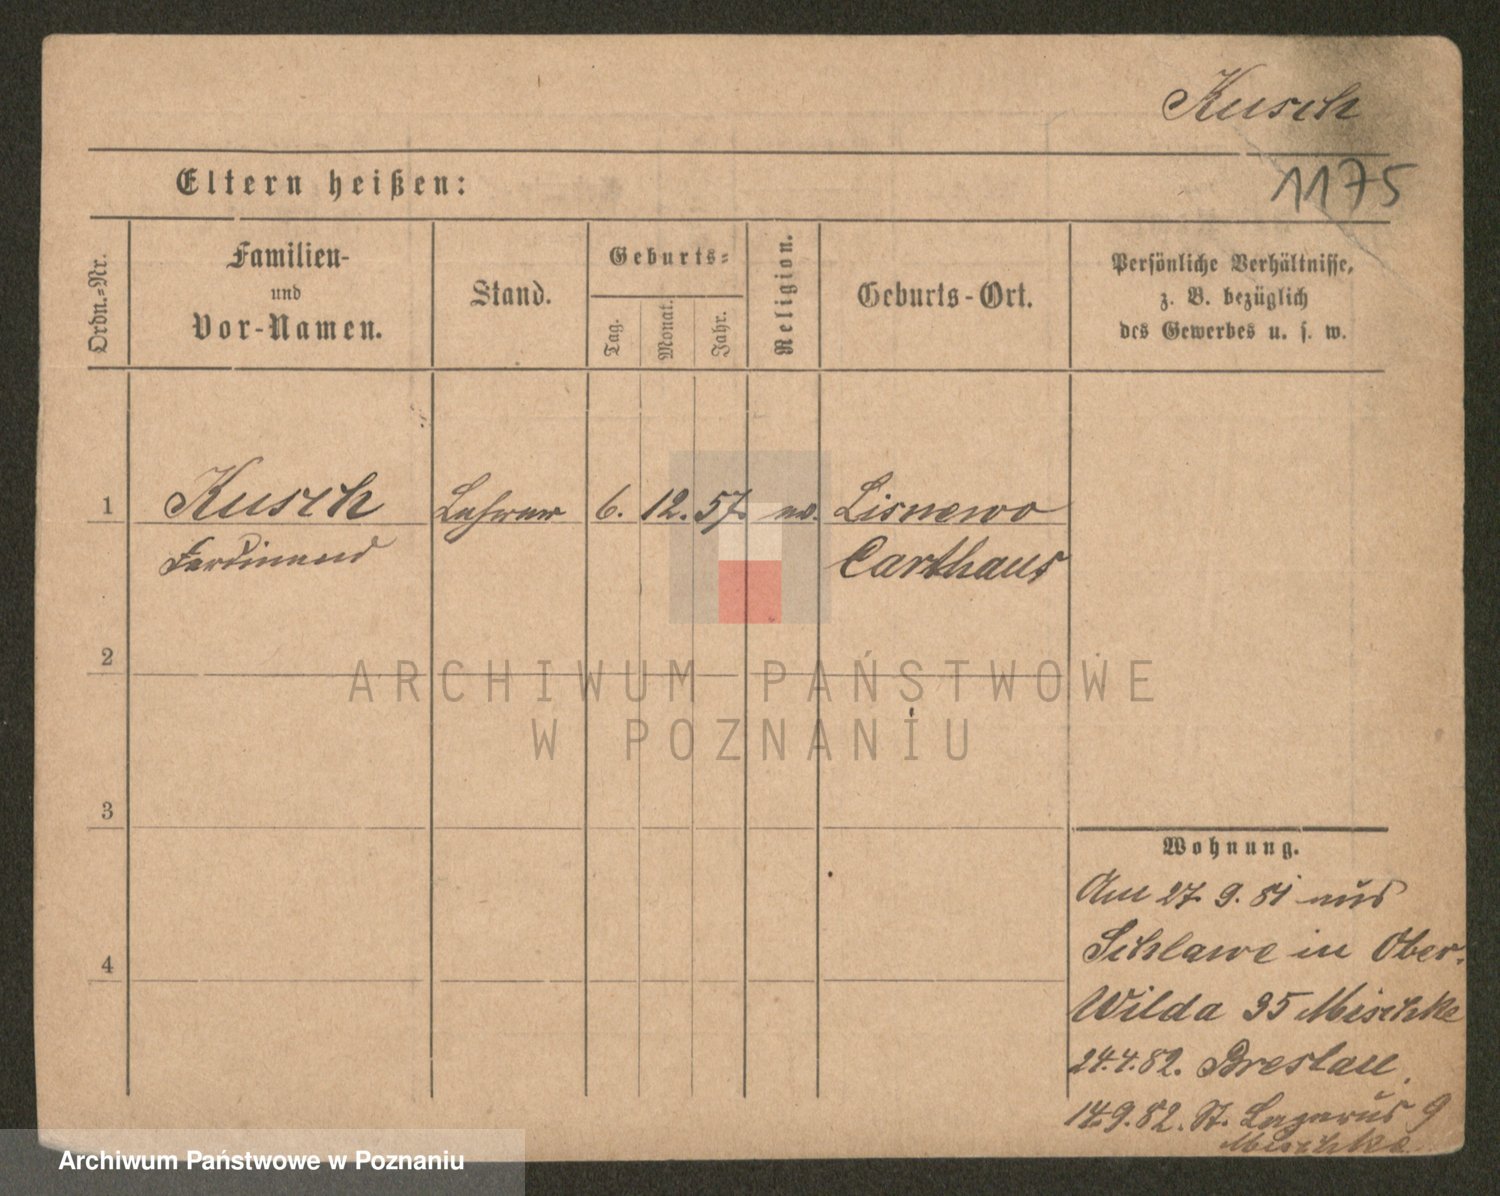 Kusch
1175
Eltern heißen:
Ordn.-Nr.
Familien-
und
Vor-Namen.
Stand.
Geburts-
Tag.
Monat.
Jahr.
Religion.
Geburts-Ort.
Persönliche Verhältnisse,
z. B. bezüglich
des Gewerbes u. s. w.
1 Kusch 6. 12. 57. Lisnewo
Ferdinand Carthaus
2
ARCHIWUM PAŃSTWOWE
W POZNANIU
3
Wohnung.
Am 27. 9. 81 aus
Schlawe in Ober-
4
Wilda 35 Mischke
24.4.82. Breslau.
14.9.82. St. Lazarus 9
Mischke
Archiwum Państwowe w Poznaniu